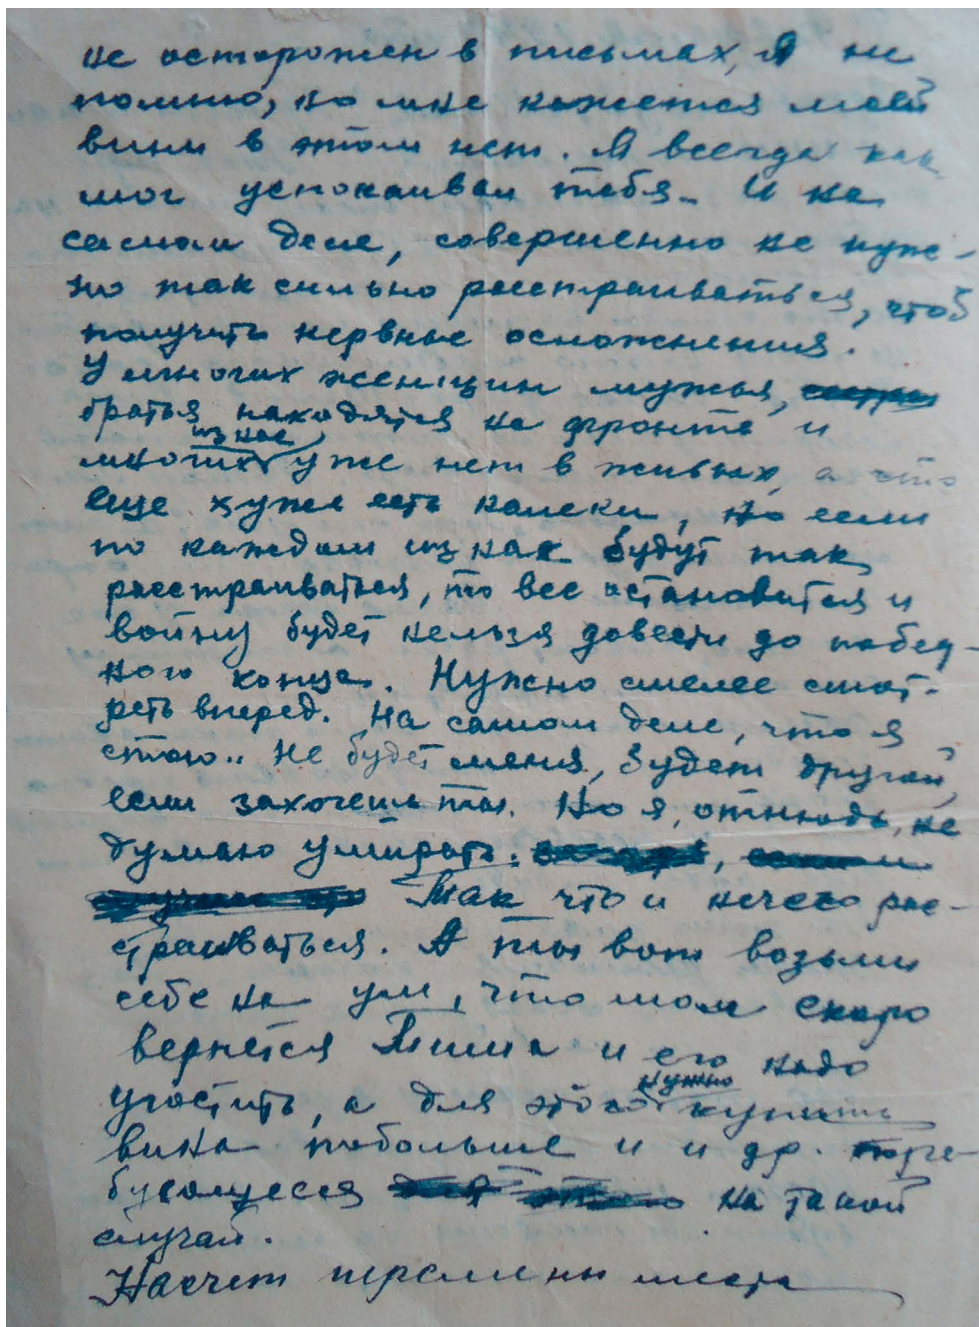 не осторожен в письмах, Я не
помню, но мне кажется моей
вины в этом нет. Я всегда как
мог успокаивал тебя. И на
самом деле, совершенно не нуж-
но так сильно расстраиваться, чтоб
получить нервные осложнения.
У многих женщин мужья,
братья находятся на фронте и
из нас
многих уже нет в живых, а что
еще хуже есть калеки, но если
по каждом из нас будут так
расстраиваться, то все остановится и
войну будет нельзя довести до побед-
ного конца. Нужно смелее смот-
реть вперед. На самом деле, что я
стою.. Не будет меня, будет другой,
если захочешь ты. Но я, отнюдь, не
думаю умирать.
Так что и нечего рас-
страиваться. А ты вот возьми
себе на ум, что мол скоро
вернется Тима и его надо
нужно
угостить, а для этого купить
вина побольше и и др. потре-
бующееся на такой
случай.
Насчет перемены места